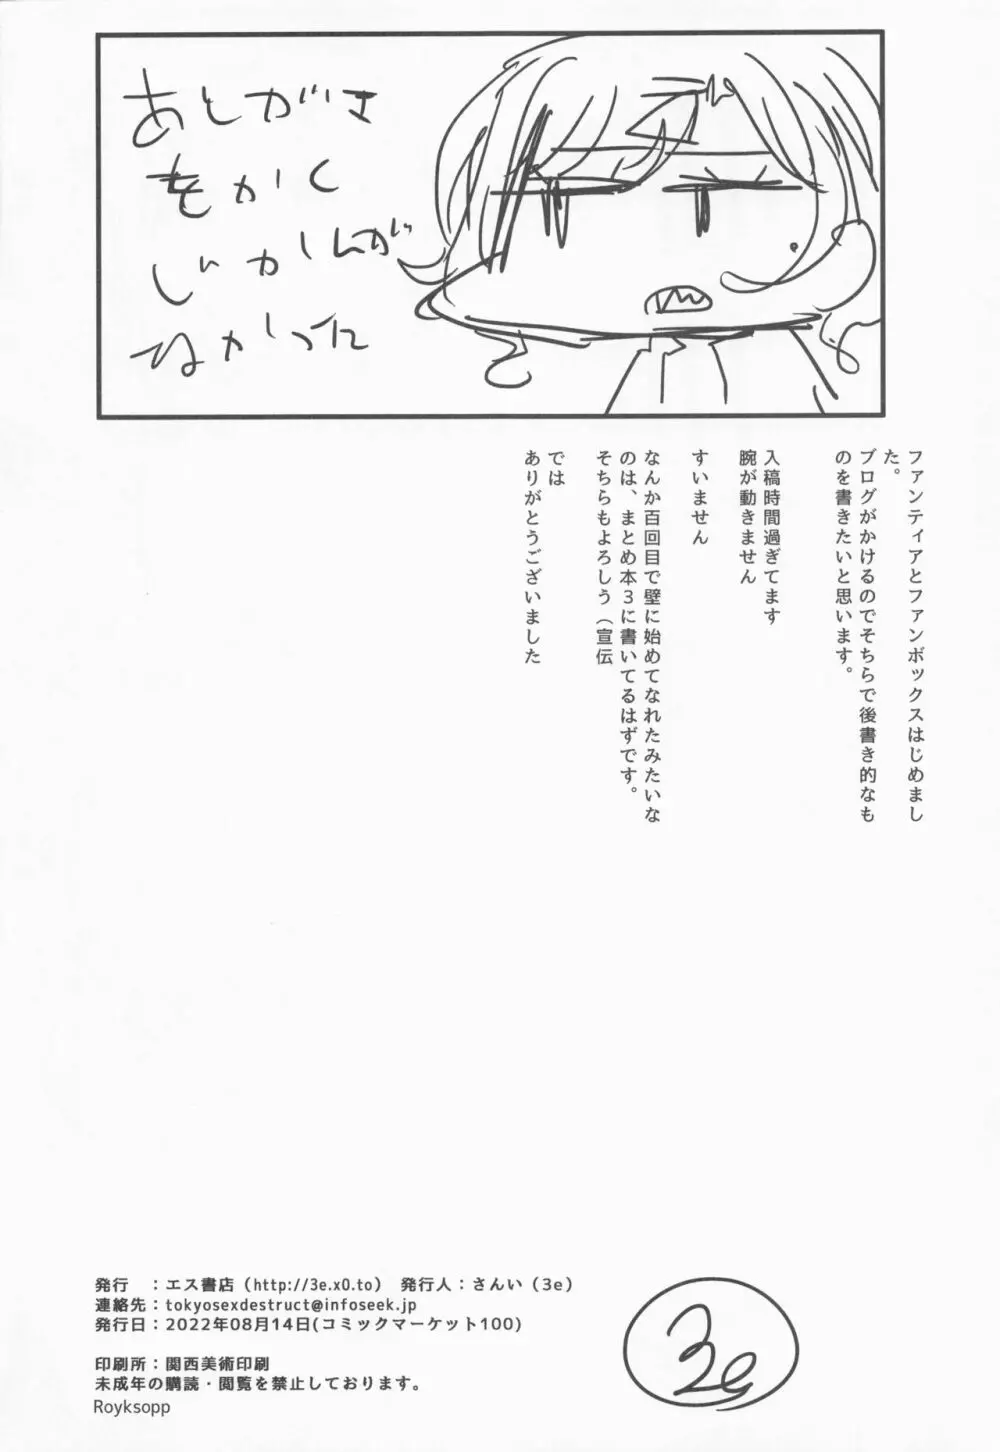 あとがき
をかく
じかんが
なかった
ファンティアとファンボックスはじめまし
た。
ブログがかけるのでそちらで後書き的なも
のを書きたいと思います。
入稿時間過ぎてます
腕が動きません
すいません
なんか百回目で壁に始めてなれたみたいな
のは、まとめ本3に書いてるはずです。
そちらもよろしう（宣伝
では
ありがとうございました
発行　：エス書店（http://3e.x0.to）　発行人：さんい（3e）
連絡先：tokyosexdestruct@infoseek.jp
発行日：2022年08月14日(コミックマーケット100)
印刷所：関西美術印刷
未成年の購読・閲覧を禁止しております。
Royksopp
3e